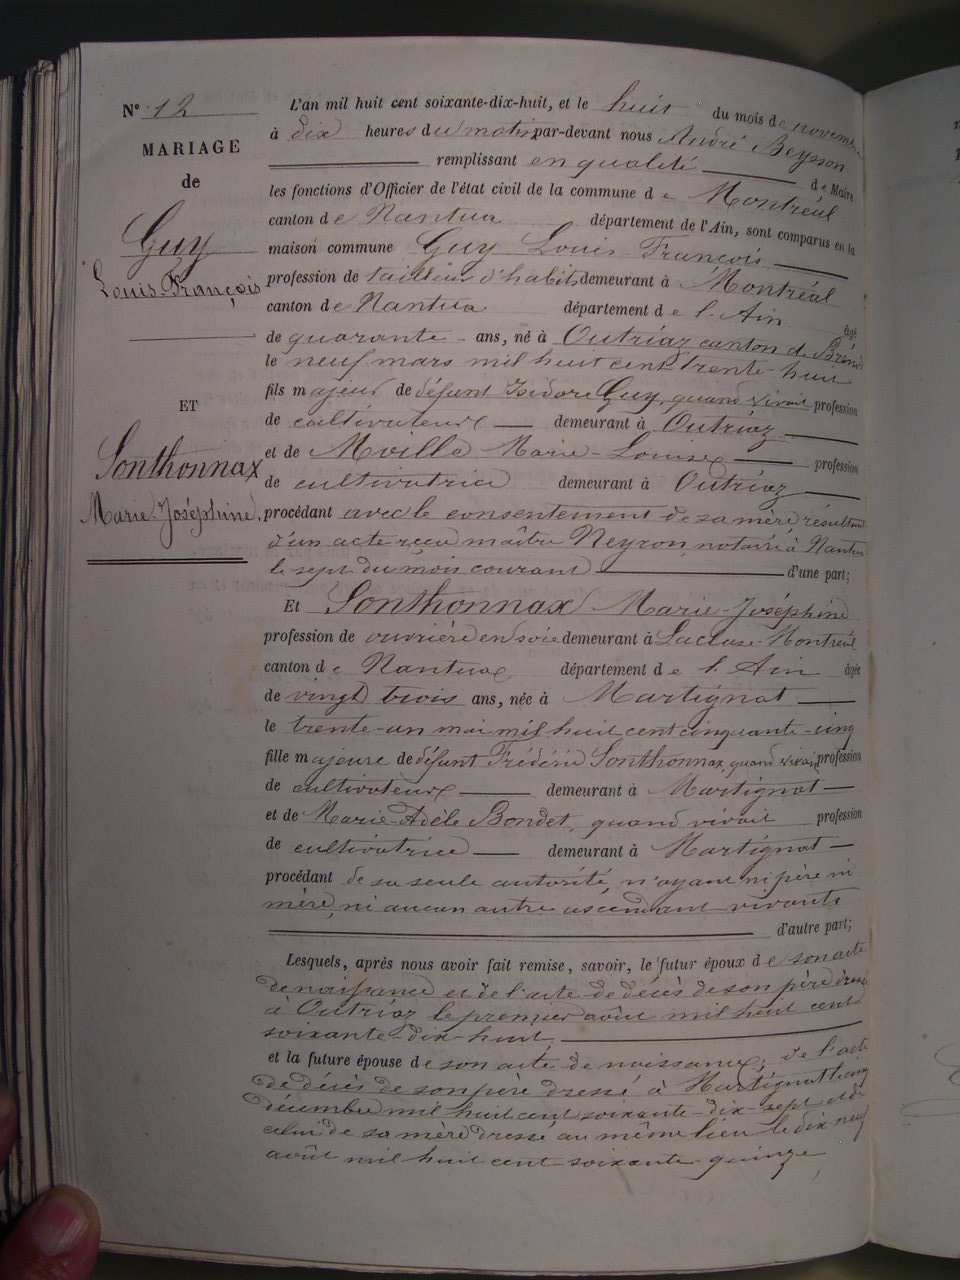 N° 12
MARIAGE
de
Guy
Louis-François
ET
Sonthonnax
Marie Joséphine,
L'an mil huit cent soixante-dix-huit, et le huit du mois de novembre
à dix heures du matin par-devant nous André Beysson
remplissant en qualité de Maire
les fonctions d'Officier de l'état civil de la commune de Montréal
canton de Nantua département de l'Ain, sont comparus en la
maison commune Guy Louis-François
profession de tailleur d'habits demeurant à Montréal
canton de Nantua département de l'Ain âgé
de quarante ans, né à Outriaz canton de Brénod
le neuf mars mil huit cent trente-huit
fils majeur de défunt Isidore Guy, quand vivait profession
de cultivateur demeurant à Outriaz
et de Marie-Louise profession
de cultivatrice demeurant à Outriaz
procédant avec le consentement de sa mère résultant
d'un acte reçu maître Neyron, notaire à Nantua
le sept du mois courant d'une part;
Et Sonthonnax Marie-Joséphine
profession de ouvrière en soie demeurant à Lacluse-Montréal
canton de Nantua département de l'Ain âgée
de vingt trois ans, née à Martignat
le trente-un mai mil huit cent cinquante-cinq
fille majeure de défunt Frédéric Sonthonnax, quand vivait profession
de cultivateur demeurant à Martignat
et de Marie-Adèle Bondet, quand vivait profession
de cultivatrice demeurant à Martignat
procédant de sa seule autorité, n'ayant ni père ni
mère, ni aucun autre ascendant vivants
d'autre part;
Lesquels, après nous avoir fait remise, savoir, le futur époux de son acte
de naissance et de l'acte de décès de son père dressé
à Outriaz le premier août mil huit cent
soixante-dix-huit,
et la future épouse de son acte de naissance; de l'acte
de décès de son père dressé à Martignat le cinq
décembre mil huit cent soixante-dix-sept et de
celui de sa mère dressé au même lieu le dix-neuf
août mil huit cent soixante-quinze,